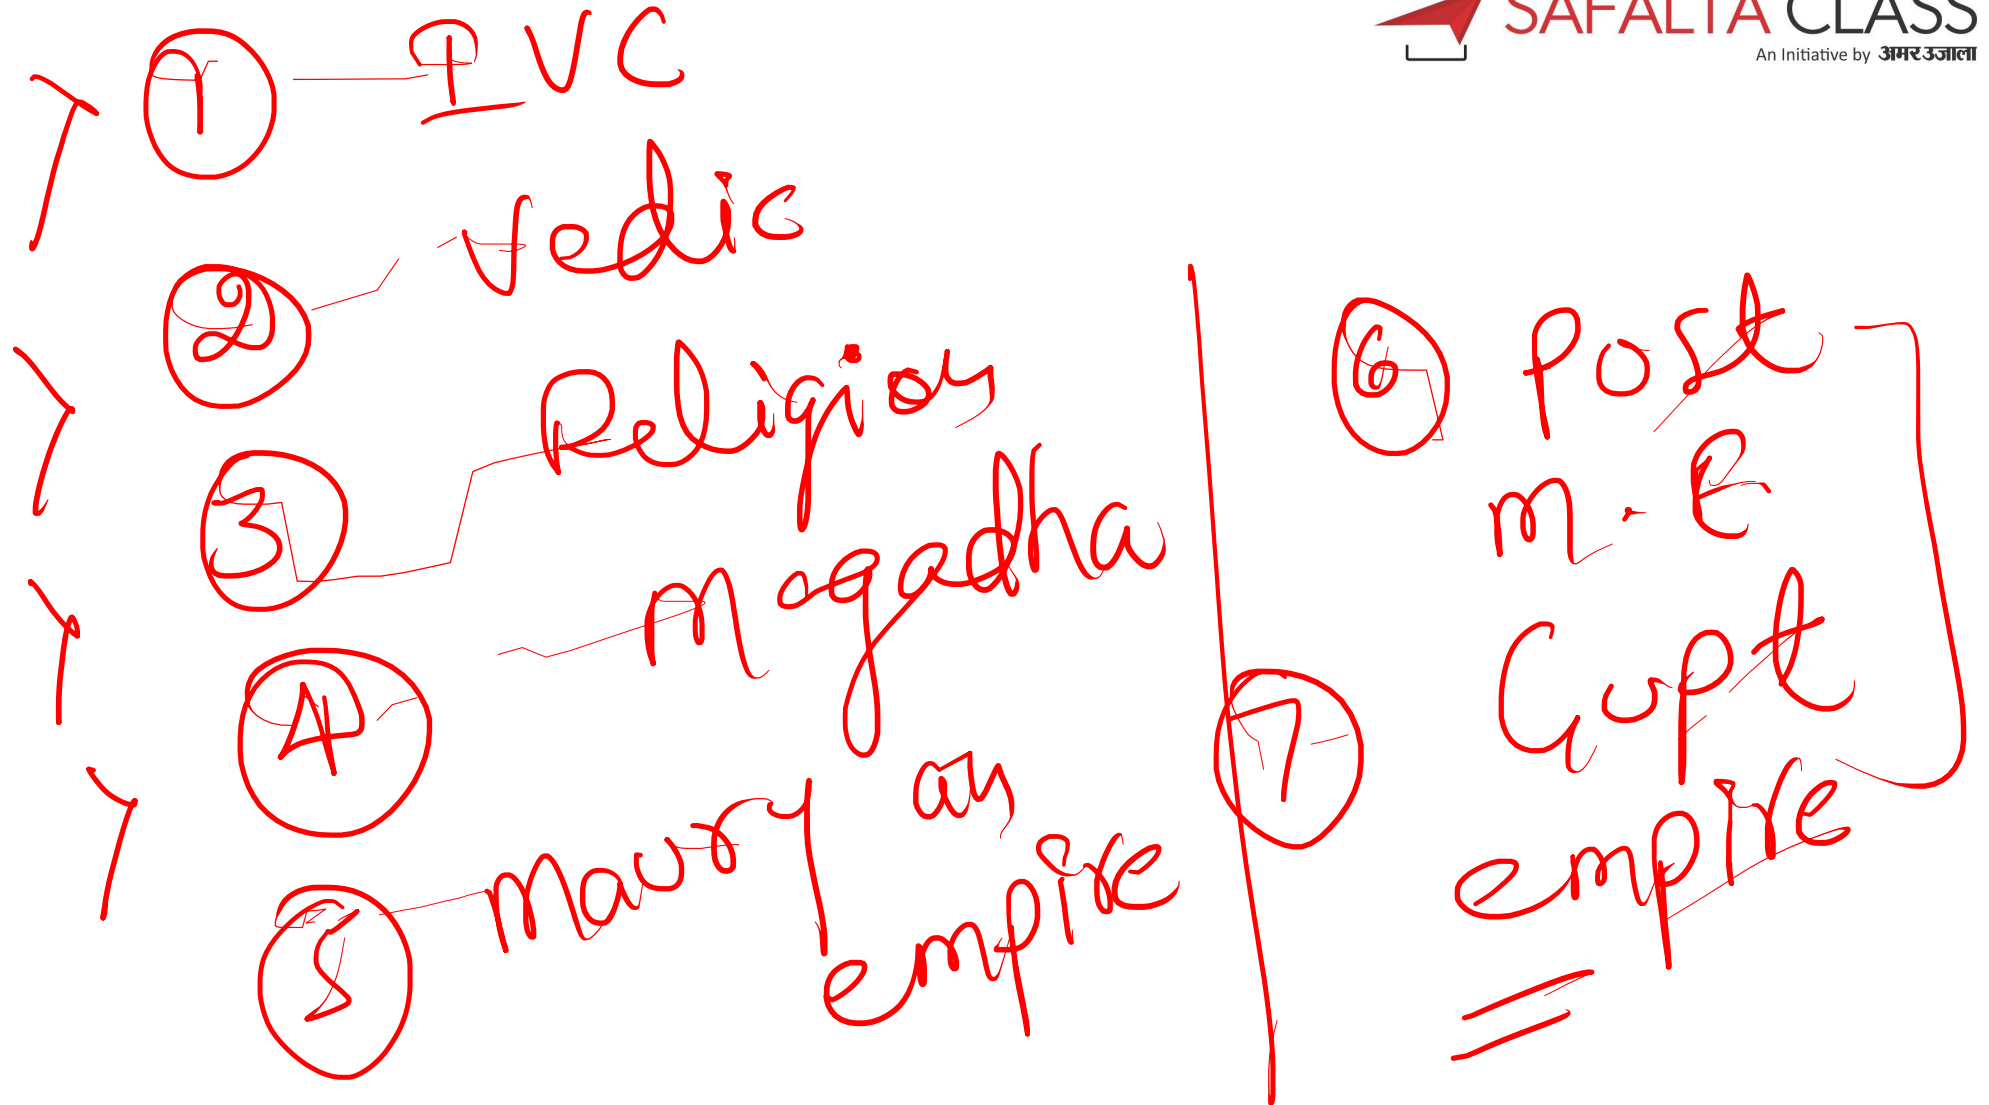 SAFALTA CLASS
An Initiative by अमर उजाला
1 IVC
2 Vedic
3 Religion
4 Magadha
5 Mauryan
empire
6 Post
M.E
7 Gupt
empire